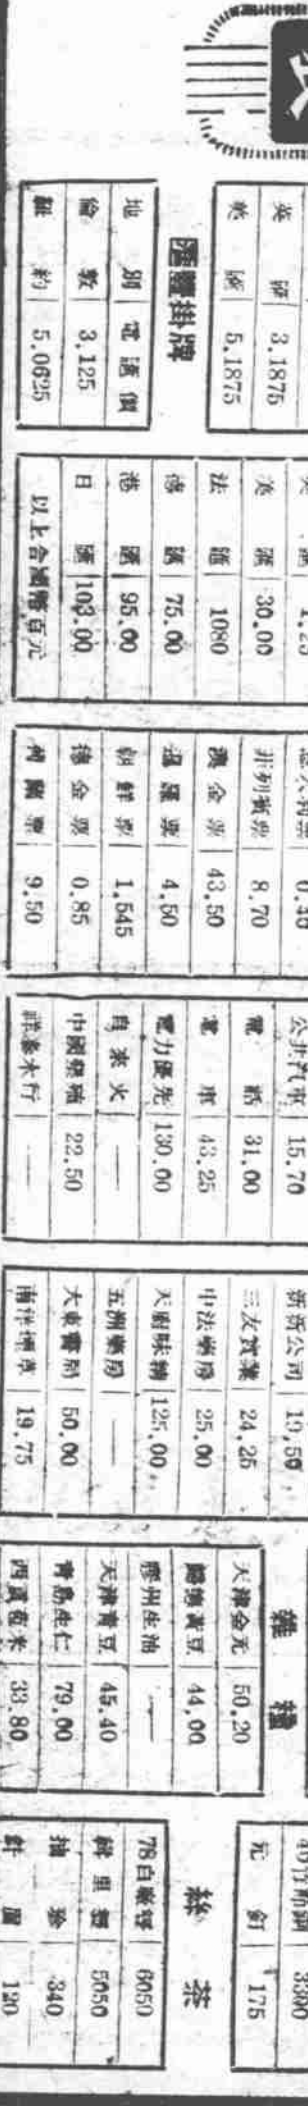 英 匯 3.1875
美 匯 5.1875
匯豐掛牌
地 別 電匯價
倫 敦 3.125
紐 約 5.0625
美 匯 30.00
法 匯 1080
德 匯 75.00
港 匯 95.00
日 匯 103.00
以上合國幣百元
菲列賓票 8.70
澳金票 43.50
暹羅票 4.50
朝鮮票 1.545
德金票 0.85
9.50
公共汽車 15.70
電 話 31.00
電 車 43.25
電力優先 130.00
自來火 —
中國墾殖 22.50
祥泰木行 —
新新公司 19.50
三友實業 24.25
中法藥房 25.00
天廚味精 125.00
五洲藥房 —
大東書局 50.00
南洋煙草 19.75
雜 糧
天津金元 50.20
黃豆 44.00
膠州生油 —
天津青豆 45.40
青島生仁 79.00
西貢苞米 33.80
3300
元 釘 175
絲 茶
78白廠經 6050
輯里經 5050
抽 珍 340
針 眉 120